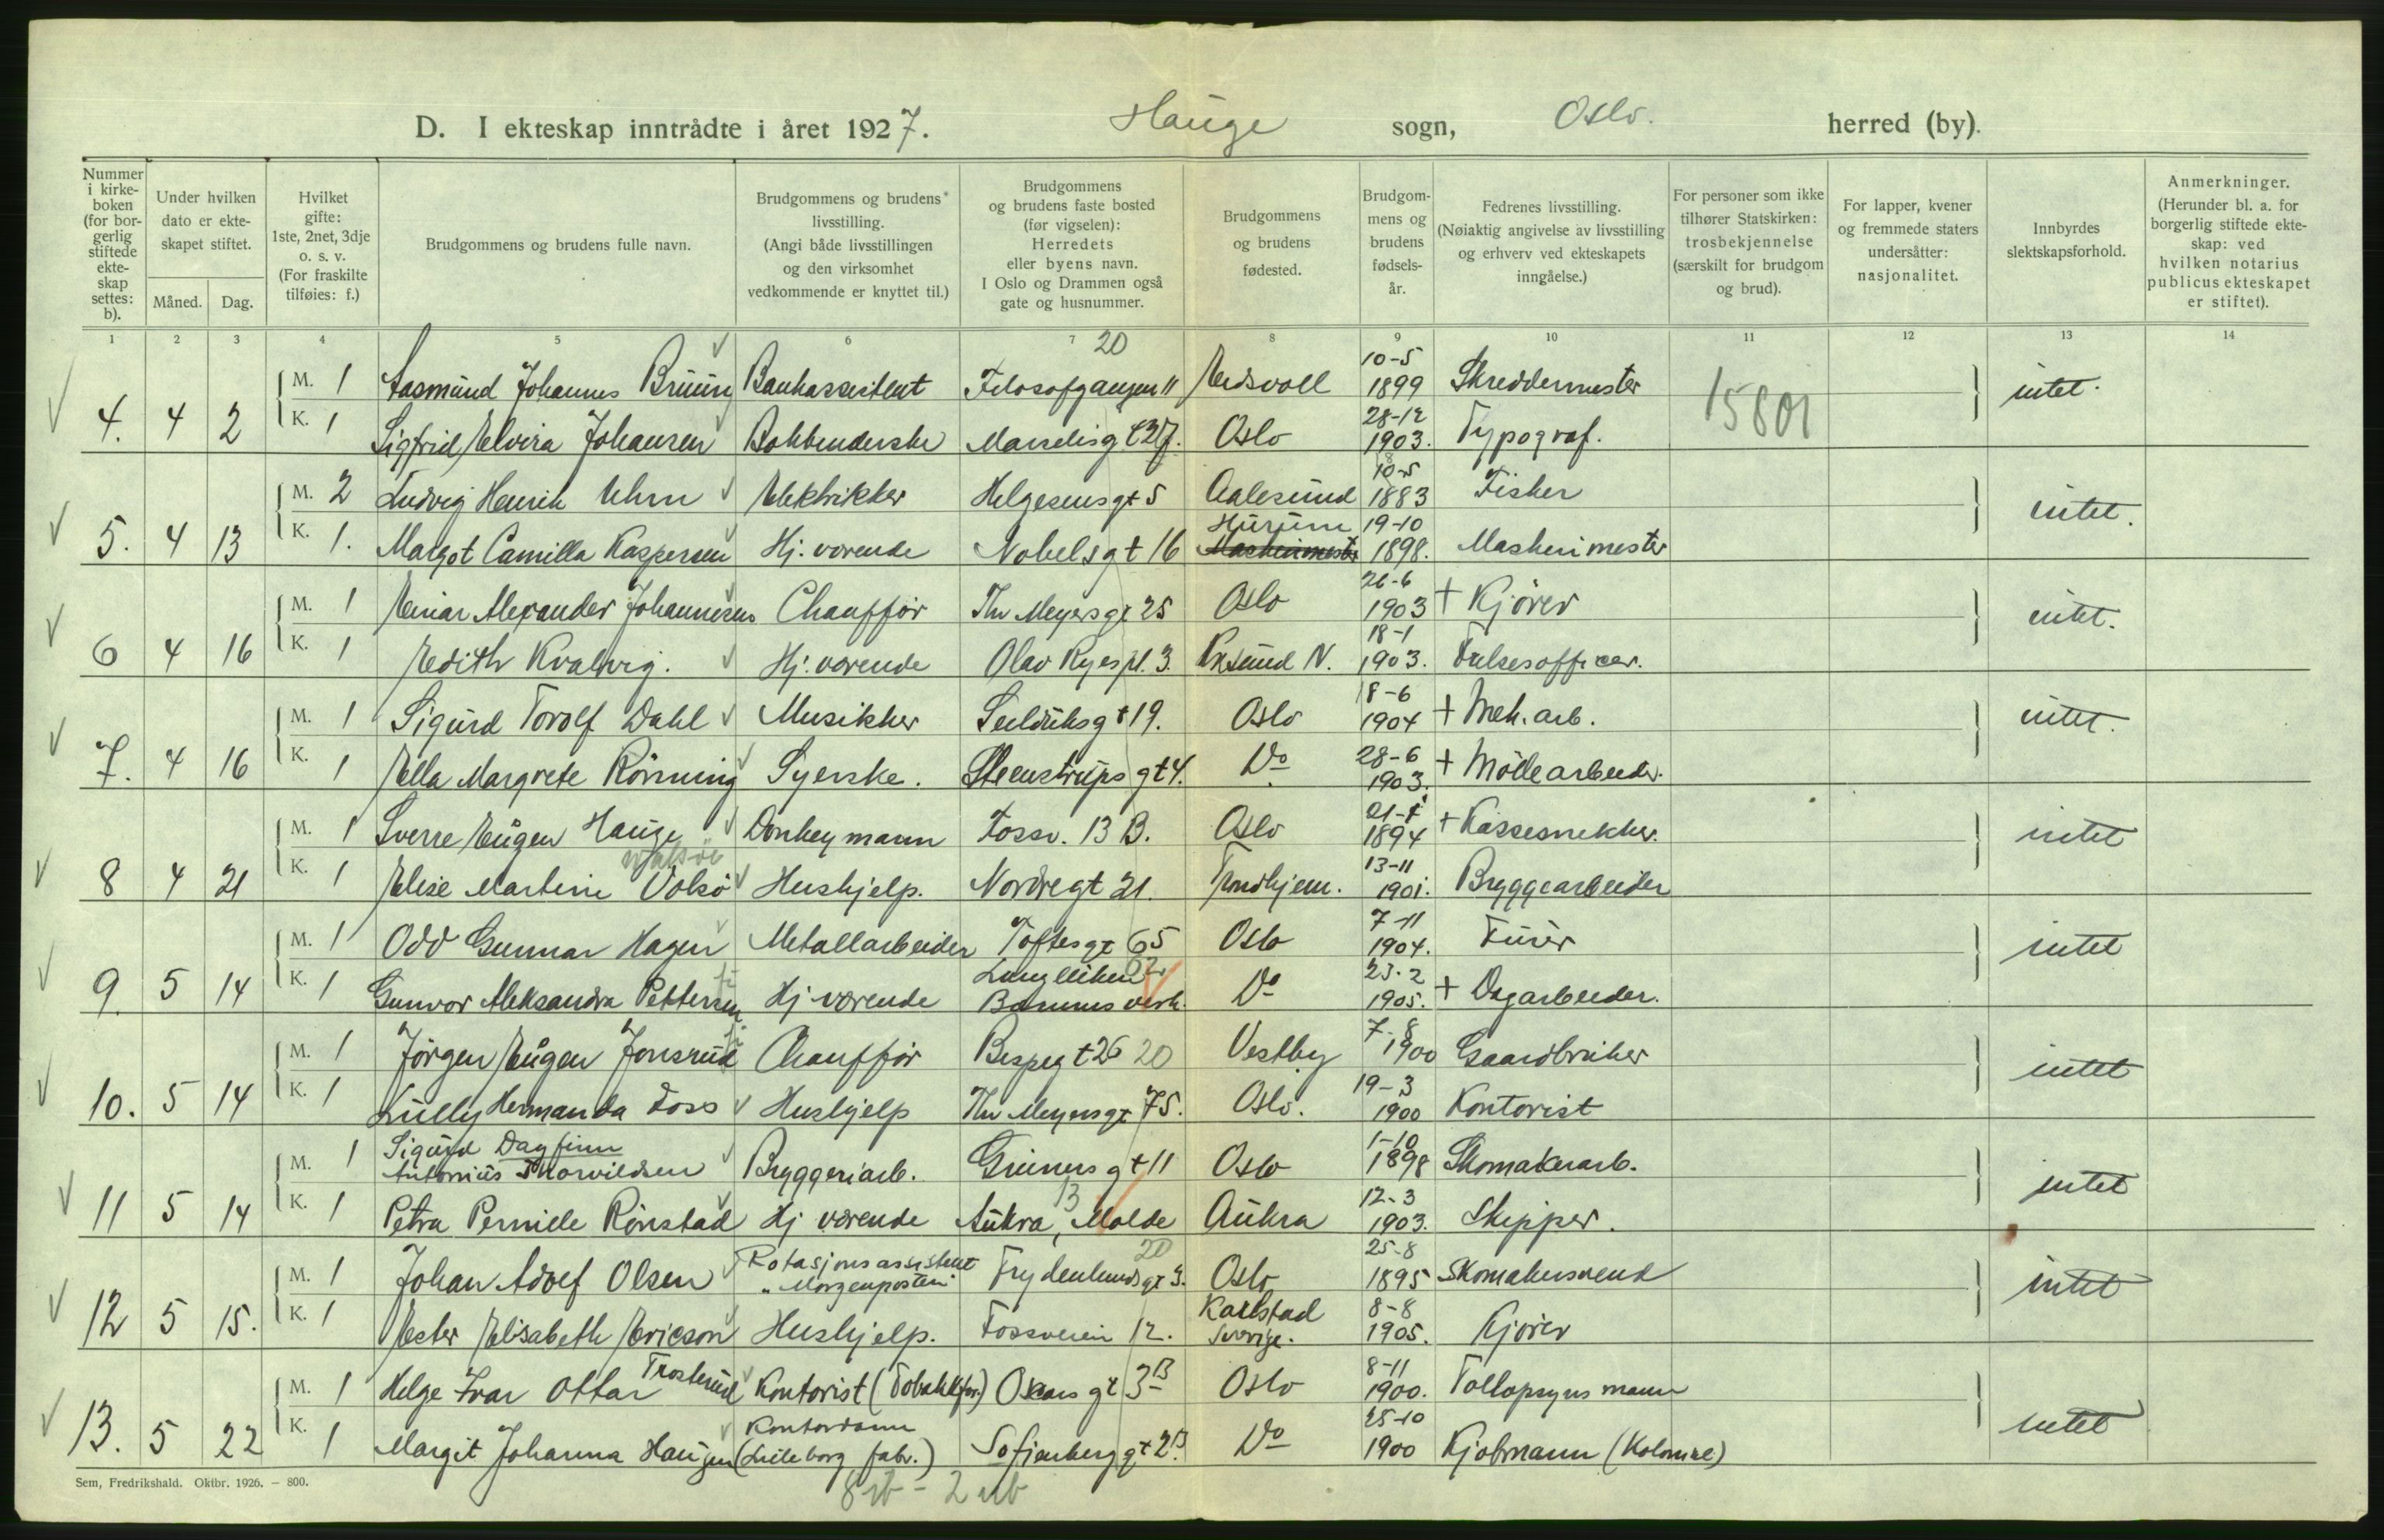 D. I ekteskap inntrådte i året 1927. Hauge sogn, Oslo. herred (by).
Nummer i kirkeboken (for borgerlig stiftede ekteskap settes: b).
Under hvilken dato er ekteskapet stiftet.
Måned. Dag.
Hvilket gifte: 1ste, 2net, 3dje o. s. v. (For fraskilte tilføies: f.)
Brudgommens og brudens fulle navn.
Brudgommens og brudens livsstilling. (Angi både livsstillingen og den virksomhet vedkommende er knyttet til.)
Brudgommens og brudens faste bosted (før vigselen): Herredets eller byens navn. I Oslo og Drammen også gate og husnummer.
Brudgommens og brudens fødested.
Brudgommens og brudens fødselsår.
Fedrenes livsstilling. (Nøiaktig angivelse av livsstilling og erhverv ved ekteskapets inngåelse.)
For personer som ikke tilhører Statskirken: trosbekjennelse (særskilt for brudgom og brud).
For lapper, kvener og fremmede staters undersåtter: nasjonalitet.
Innbyrdes slektskapsforhold.
Anmerkninger. (Herunder bl. a. for borgerlig stiftede ekteskap: ved hvilken notarius publicus ekteskapet er stiftet).
1 2 3 4 5 6 7 8 9 10 11 12 13 14
20
M. 1 Aasmund Johannes Bruun Bankassistent Filosofgangen 11 Eidsvoll 10-5 1899 Skreddermester 15801 intet.
4. 4 2 K. 1 Sigfrid Elvira Johansen Bokbenderske Marselisgt 27. Oslo 28-12 1903. Typograf.
M. 2 Ludvig Henrik Uhrn Elektrikker Helgesensgt 5 Aalesund 10-5 1883 Fisker intet.
5. 4 13 K. 1. Margot Camilla Kaspersen Hj. værende Nobelsgt 16 Hurum 19-10 1898. Maskinmester
M. 1 Einar Alexander Johannesen Chauffør Thv Meyersgt 25 Oslo 26-6 1903 + Kjører intet.
6 4 16 K. 1 Edith Kvalvig. Hj. værende Olav Ryes pl. 3. Kr.sund N. 18-1 1903. Frelsesofficer.
M. 1 Sigurd Torolf Dahl Musikker Seilduksgt 19. Oslo 18-6 1904 + Mek. arb. intet.
7. 4 16 K. 1 Ella Margrete Rönning Syerske. Steenstrups gt 4. Do 28-6 1903. + Möllearbeider.
M. 1 Sverre Eugen Hauge Donkeymann Fossv. 13 B. Oslo 1894 + Kassesnekker. intet
8 4 21 K. 1 Elise Martine Volsö Hushjelp. Nordregt 21. Trondhjem. 13-11 1901. Bryggearbeider
M. 1 Odd Gunnar Hagen Metallarbeider Toftesgt 65 Oslo 7-11 1904. Furér intet
9. 5 14 K. 1 Gunvor Aleksandra Pettersen Hj værende Langlliken Bærums verk. Do 23-2 1905. + Dagarbeider.
M. 1 Jörgen Eugen Jonsrud Chauffør Bergsgt 26 20 Vestby 7-8 1900 Gaardbruker intet
10. 5 14 K. 1 Lully Hermanda Foss Hushjelp Thv Meyersgt 75. Oslo. 19-3 1900 Kontorist
M. 1 Sigurd Dagfinn Antonius Thorvildsen Bryggeriarb. Grünersgt 11 Oslo 1-10 1898 Skomakerarb. intet
11 5 14 K. 1 Petra Pernille Rönstad Hj værende Aukra, Molde 13 Aukra 12-3 1903. Skipper.
M. 1 Johan Adolf Olsen Rotasjonsassistent "Morgenposten" Frydenlundsgt 9. 20 Oslo 25-8 1895 Skomakersvend intet
12 5 15. K. 1 Ester Elisabeth Ericson Hushjelp. Fossveien 12. Karlstad Sverige. 8-8 1905. Kjører
M. 1 Helge Ivar Ottar Trosterud Kontorist (Tobakkfor.) Oscars gt 3B Oslo 8-11 1900. Tollopsynsmann intet
13. 5 22 K. 1 Margit Johanna Haugen Kontordame (Lilleborg fabr.) Sofienberggt 2B. Do 25-10 1900 Kjøbmann (Kolonial)
Sem, Fredrikshald. Oktbr. 1926. — 800.